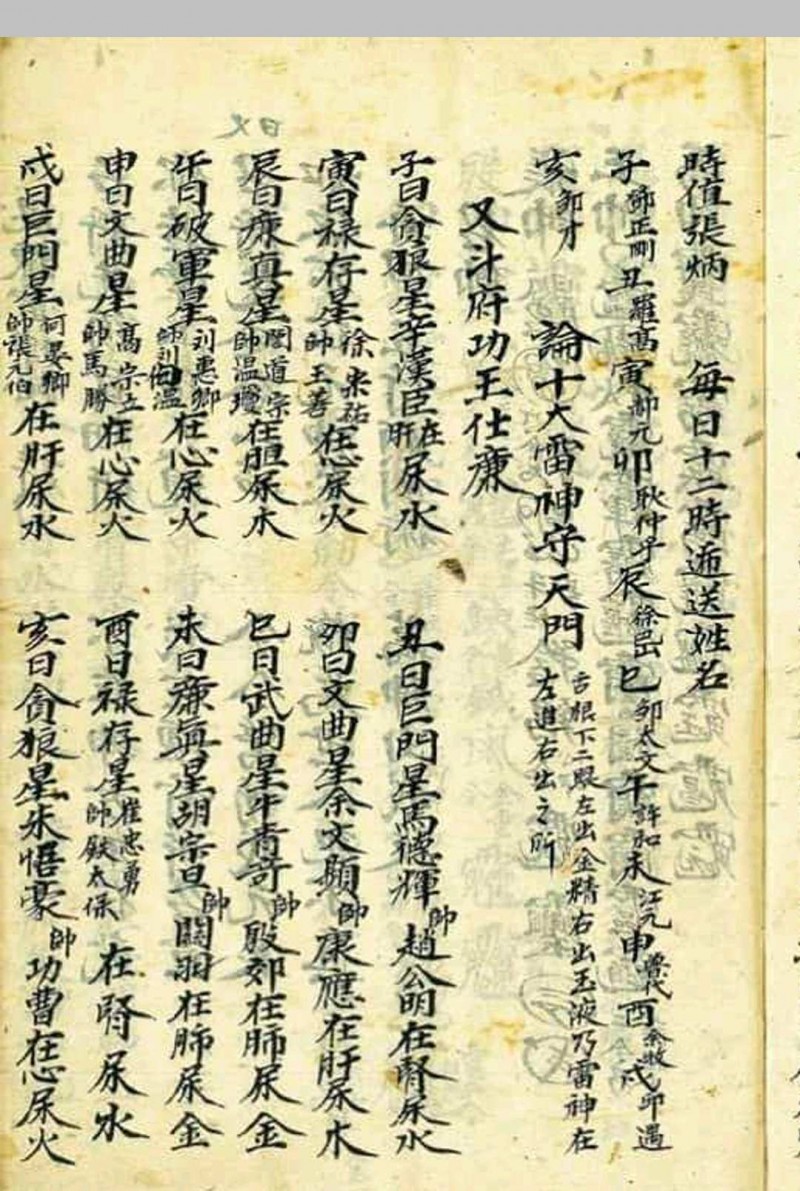 時值張炳　每日十二時逓送姓名
子 鄧正剛 丑 羅髙 寅 郝元 卯 耿仲 辰 徐 巳 卯太文 午 許如 未 江元 申 代 酉 余 戌 卯遇
亥 卯才　論十大雷神守天門 舌根下二竅左出金精右出玉液乃雷神在左進右出之所
又斗府功王仕𢊬
子曰貪狼星辛漢臣在肝尿水　丑曰巨門星馬德輝帥趙公明在腎尿水
寅曰禄存星徐耒祐帥王善在心尿火　卯曰文曲星余文顯帥康應在肝尿木
辰曰廉真星閏道宗帥温瓊在胆尿木　巳曰武曲星牛青竒帥殷郊在肺尿金
午曰破軍星刘惠卿帥刘伯温在心尿火　未曰廉真星胡宗旦帥関羽在肺尿金
申曰文曲星髙宗立帥馬勝在心尿火　酉曰禄存星崔忠勇帥鉄太保在腎尿水
戌曰巨門星何晏卿帥張元伯在肝尿水　亥曰貪狼星朱悟豪帥功曹在心尿火